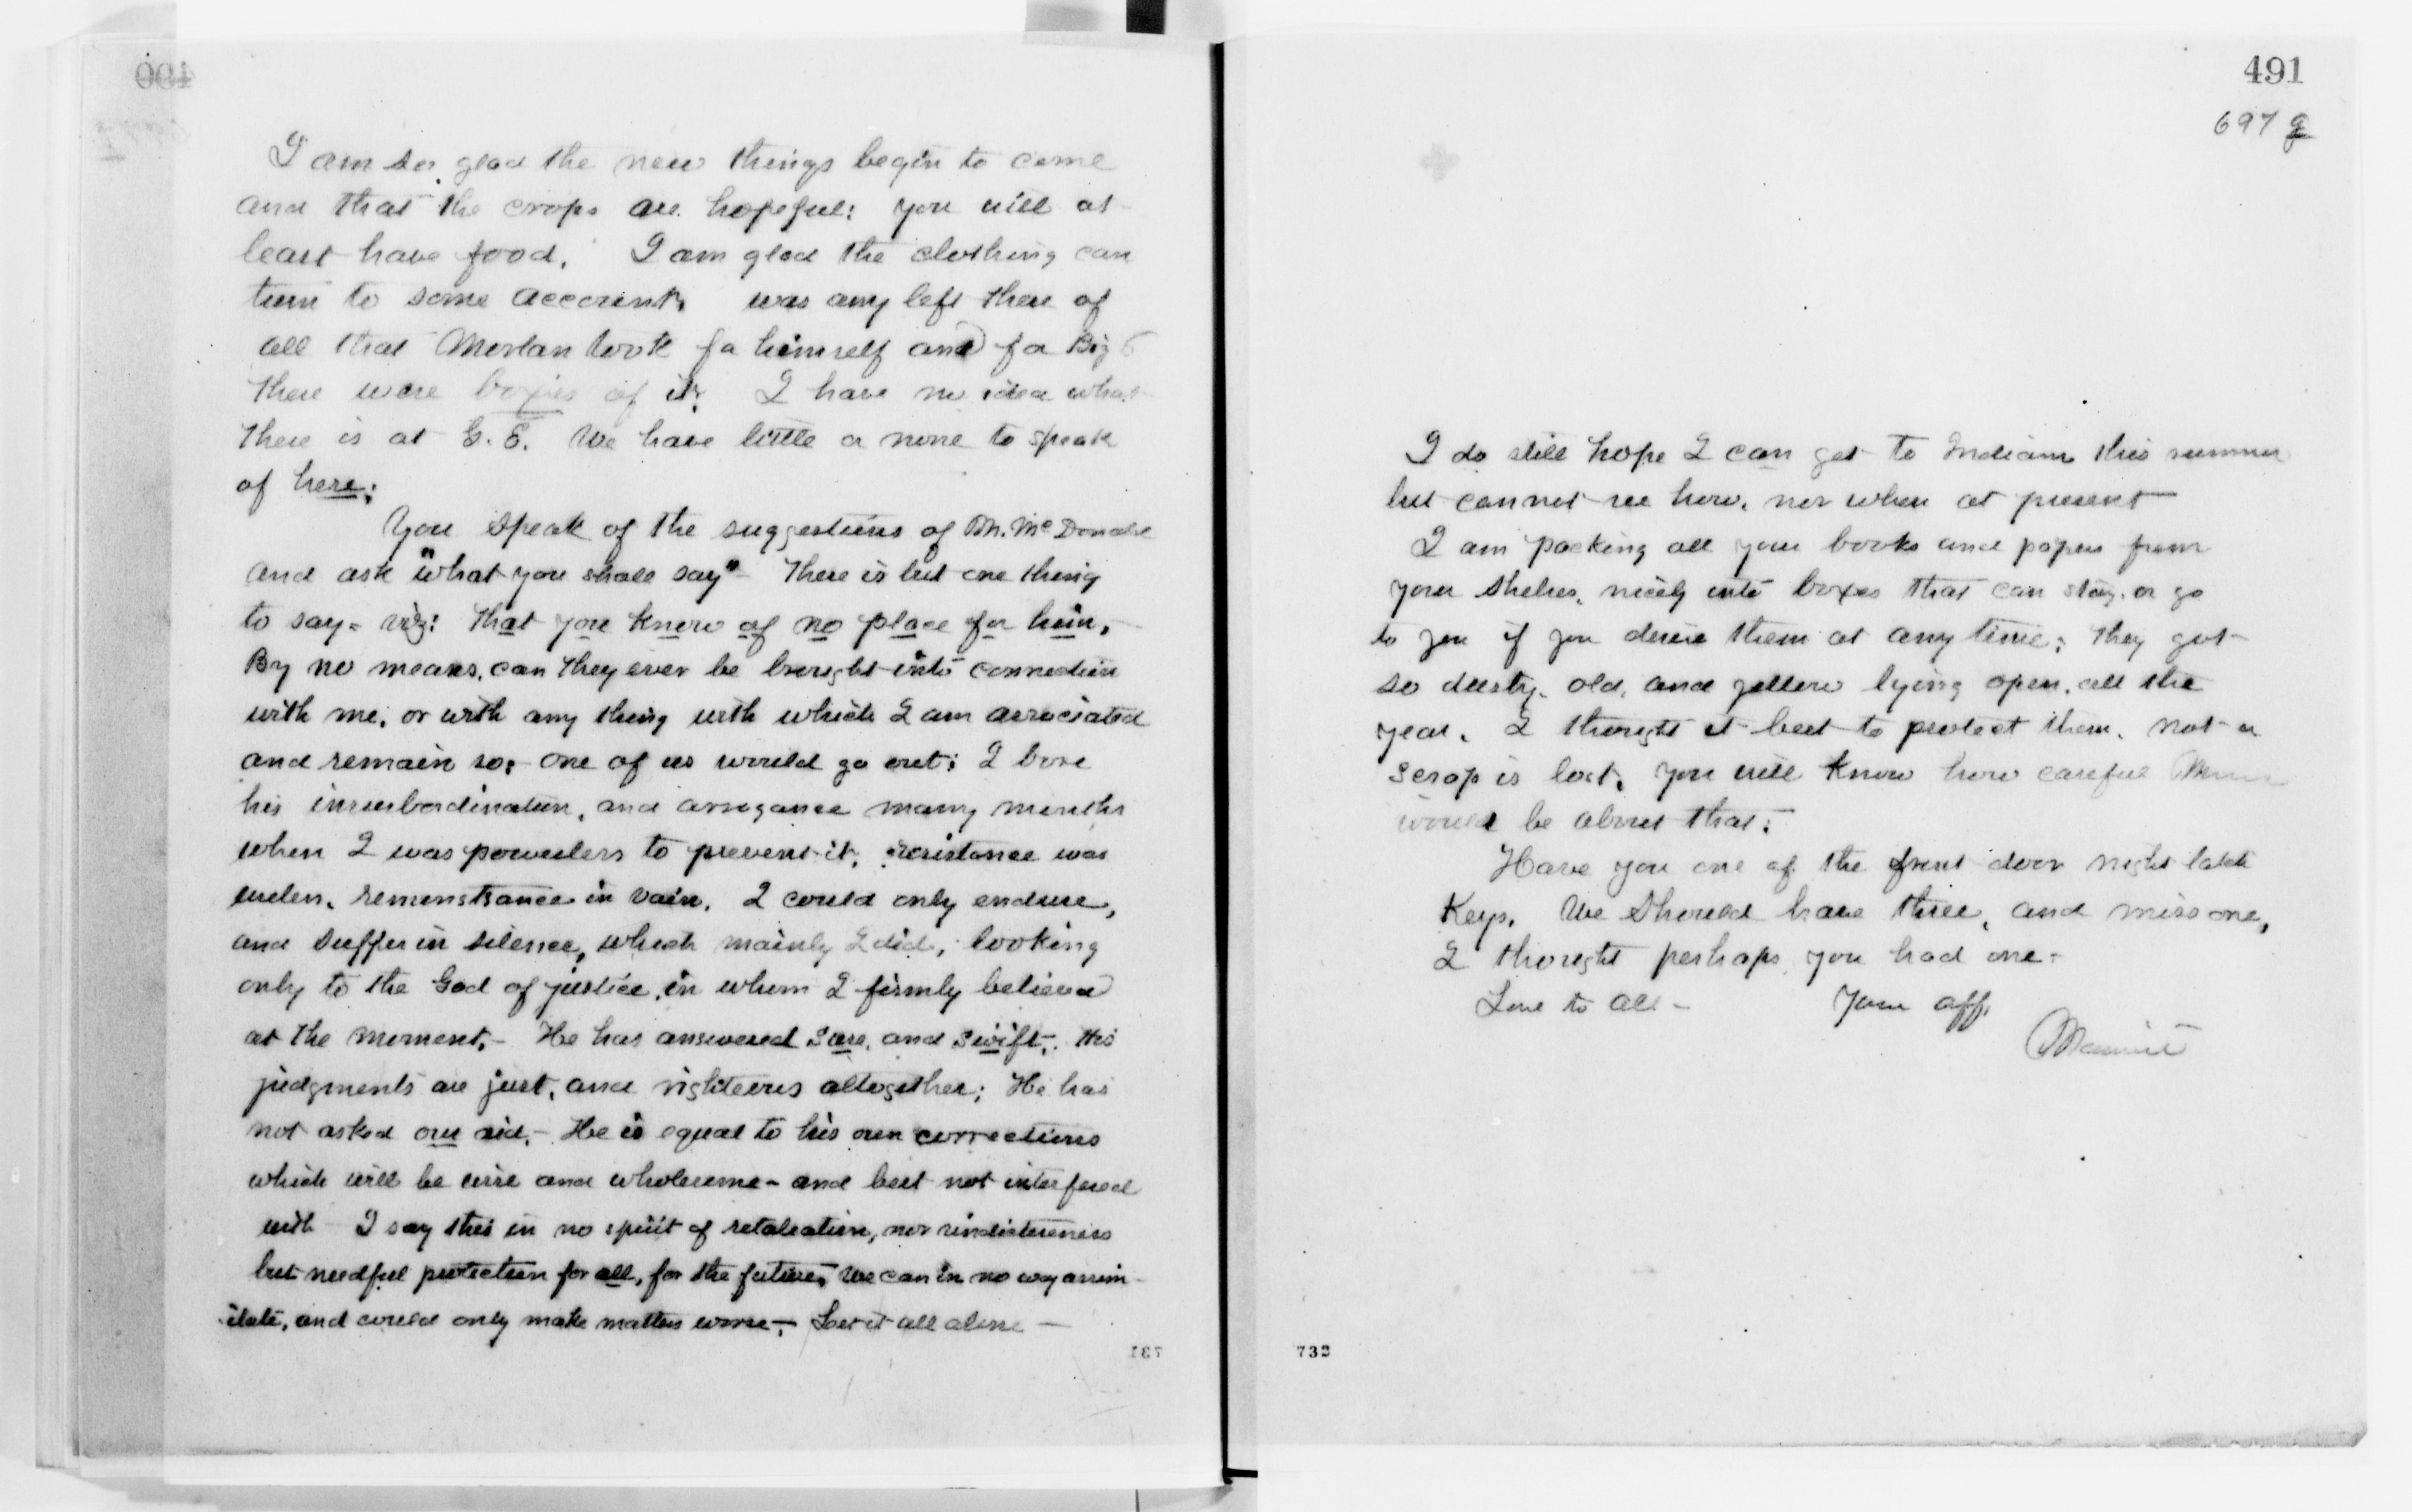 490
I am so glad the new things begin to come
and that the crops are hopeful: you will at
least have food. I am glad the clothing can
turn to some account. was any left there of
all that Morlan took for himself and for Big 6
There were boxes of it. I have no idea what
there is at G. E. We have little or none to speak
of here:
You speak of the suggestions of Dr. McDonald
and ask "what you shall say" - There is but one thing
to say - viz: That you know of no place for him.
By no means, can they ever be brought into connection
with me, or with any thing with which I am associated
and remain so; one of us would go out; I bore
his insubordination, and arrogance many months
when I was powerless to prevent it. resistance was
useless, remonstrance in vain. I could only endure,
and suffer in silence, which mainly I did, looking
only to the God of justice, in whom I firmly believed
at the moment. - He has answered sure, and swift. His
judgments are just, and righteous altogether; He has
not asked our aid. - He is equal to his own corrections
which will be wise and wholesome - and best not interfered
with - I say this in no spirit of retaliation, nor vindictiveness
but needful protection for all, for the future. We can in no way assim-
ilate, and could only make matters worse - Let it all alone -
731
491
697 g
I do still hope I can get to Indiana this summer
but cannot see how, nor when at present
I am packing all your books and papers from
your shelves, nicely into boxes that can stay, or go
to you if you desire them at any time; they get
so dusty, old, and yellow lying open, all the
year, I thought it best to protect them, not a
scrap is lost, you will know how careful
would be about that.
Have you one of the front door night latch
Keys. We should have three, and miss one,
I thought perhaps you had one -
Love to all - Your aff.
Mamie
732